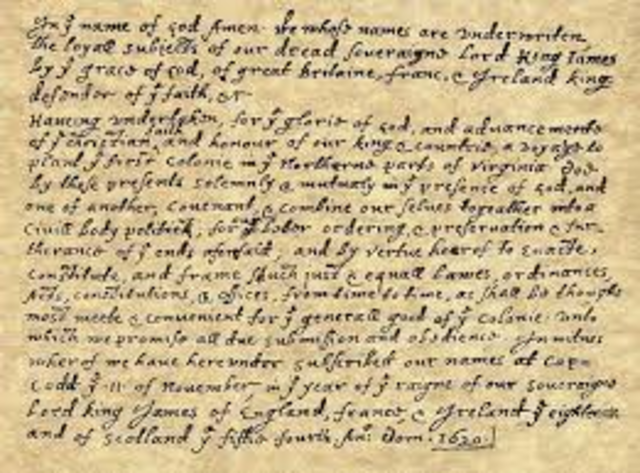 In yͤ name of god Amen. We whose names are underwriten,
the loyall subiects of our dread soveraigne Lord King James
by yͤ grace of God, of great Britaine, franc, & Ireland king,
defendor of yͤ faith, &c
Haveing undertaken, for yͤ glorie of God, and advancements
of yͤ christian faith and honour of our king & countrie, a voyage to
plant yͤ first colonie in yͤ Northerne parts of Virginia. Doe
by these presents solemnly & mutualy in yͤ presence of God, and
one of another, covenant, & combine our selves togeather into a
Civill body politick; for our better ordering, & preservation & fur-
therance of yͤ ends aforesaid; and by vertue hearof to enacte,
constitute, and frame shuch just & equall Lawes, ordinances,
Acts, constitutions, & offices, from time to time, as shall be thought
most meete & convenient for yͤ generall good of yͤ colonie: unto
which we promise all due submission and obedience. In witnes
wherof we have hereunder subscribed our names at Cape
Codd yͤ ·11· of November, in yͤ year of yͤ raigne of our soveraigne
Lord king James of England, france, & Ireland yͤ eighteenth
and of Scotland yͤ fiftie fourth. An: Dom. 1620